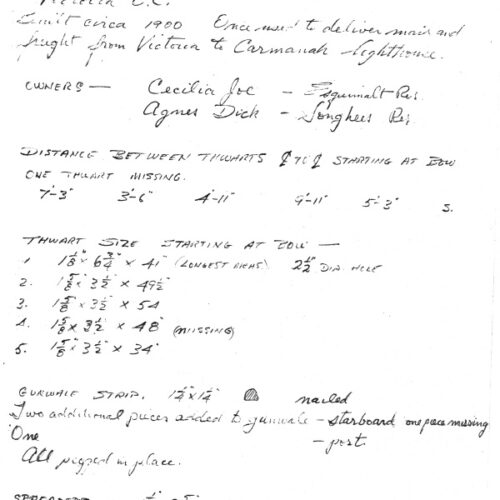 Victoria B.C.
Built circa 1900 Once used to deliver main and
freight from Victoria to Carmanah Lighthouse.
OWNERS — Cecilia Joe — Esquimalt Res.
Agnes Dick — Songhees Res.
DISTANCE BETWEEN THWARTS ₵ TO ₵ STARTING AT BOW
ONE THWART MISSING.
7'-3" 3'-6" 4'-11" 9'-11" 5'-3" 5.
THWART SIZE STARTING AT BOW —
1 1⅛" × 6¾" × 41" (LONGEST AREAS) 2½" DIA HOLE
2. 1⅝" × 3½" × 49½"
3. 1⅝" × 3½" × 54
4. 1⅝ × 3½" × 48" (MISSING)
5. 1⅝" × 3½" × 34"
GUNWALE STRIP. 1¼" × 1¼" nailed
Two additional pieces added to gunwale — starboard one piece missing
One — port.
All pegged in place.